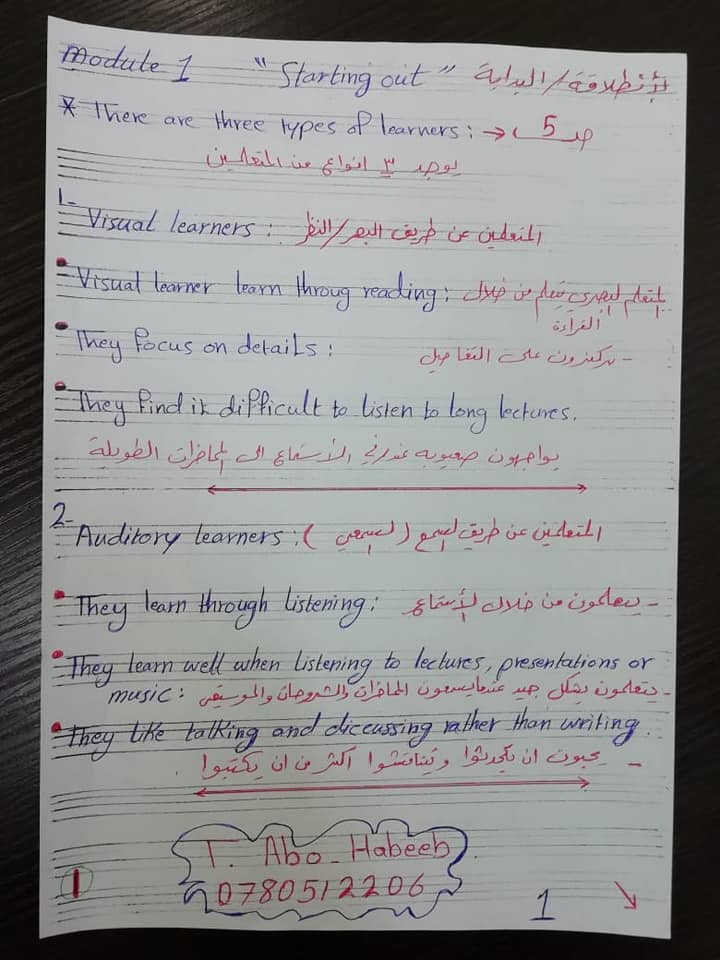 Module 1 " Starting out " لأنطلاقة/البداية
* There are three types of learners: → صـ 5
يوجد ٣ انواع من المتعلمين
1- Visual learners : المتعلمين عن طريق البصر/النظر
• Visual learner learn throug reading: المتعلم البصري يتعلم من خلال
القراءة
• They focus on details : - يركزون على التفاصيل
• They find it difficult to listen to long lectures.
يواجهون صعوبه عند الأستماع الى المحاضرات الطويلة
2- Auditory learners : المتعلمين عن طريق السمع (السمعي)
• They learn through listening: - يتعلمون من خلال الأستماع
• They learn well when listening to lectures, presentations or
music: - يتعلمون بشكل جيد عندما يسمعون المحاضرات والشروحات والموسيقى
• They like talking and diccussing rather than writing.
- يحبون ان يتحدثوا ويتناقشوا اكثر من ان يكتبوا .
T. Abo-Habeeb
0780512206
1
1